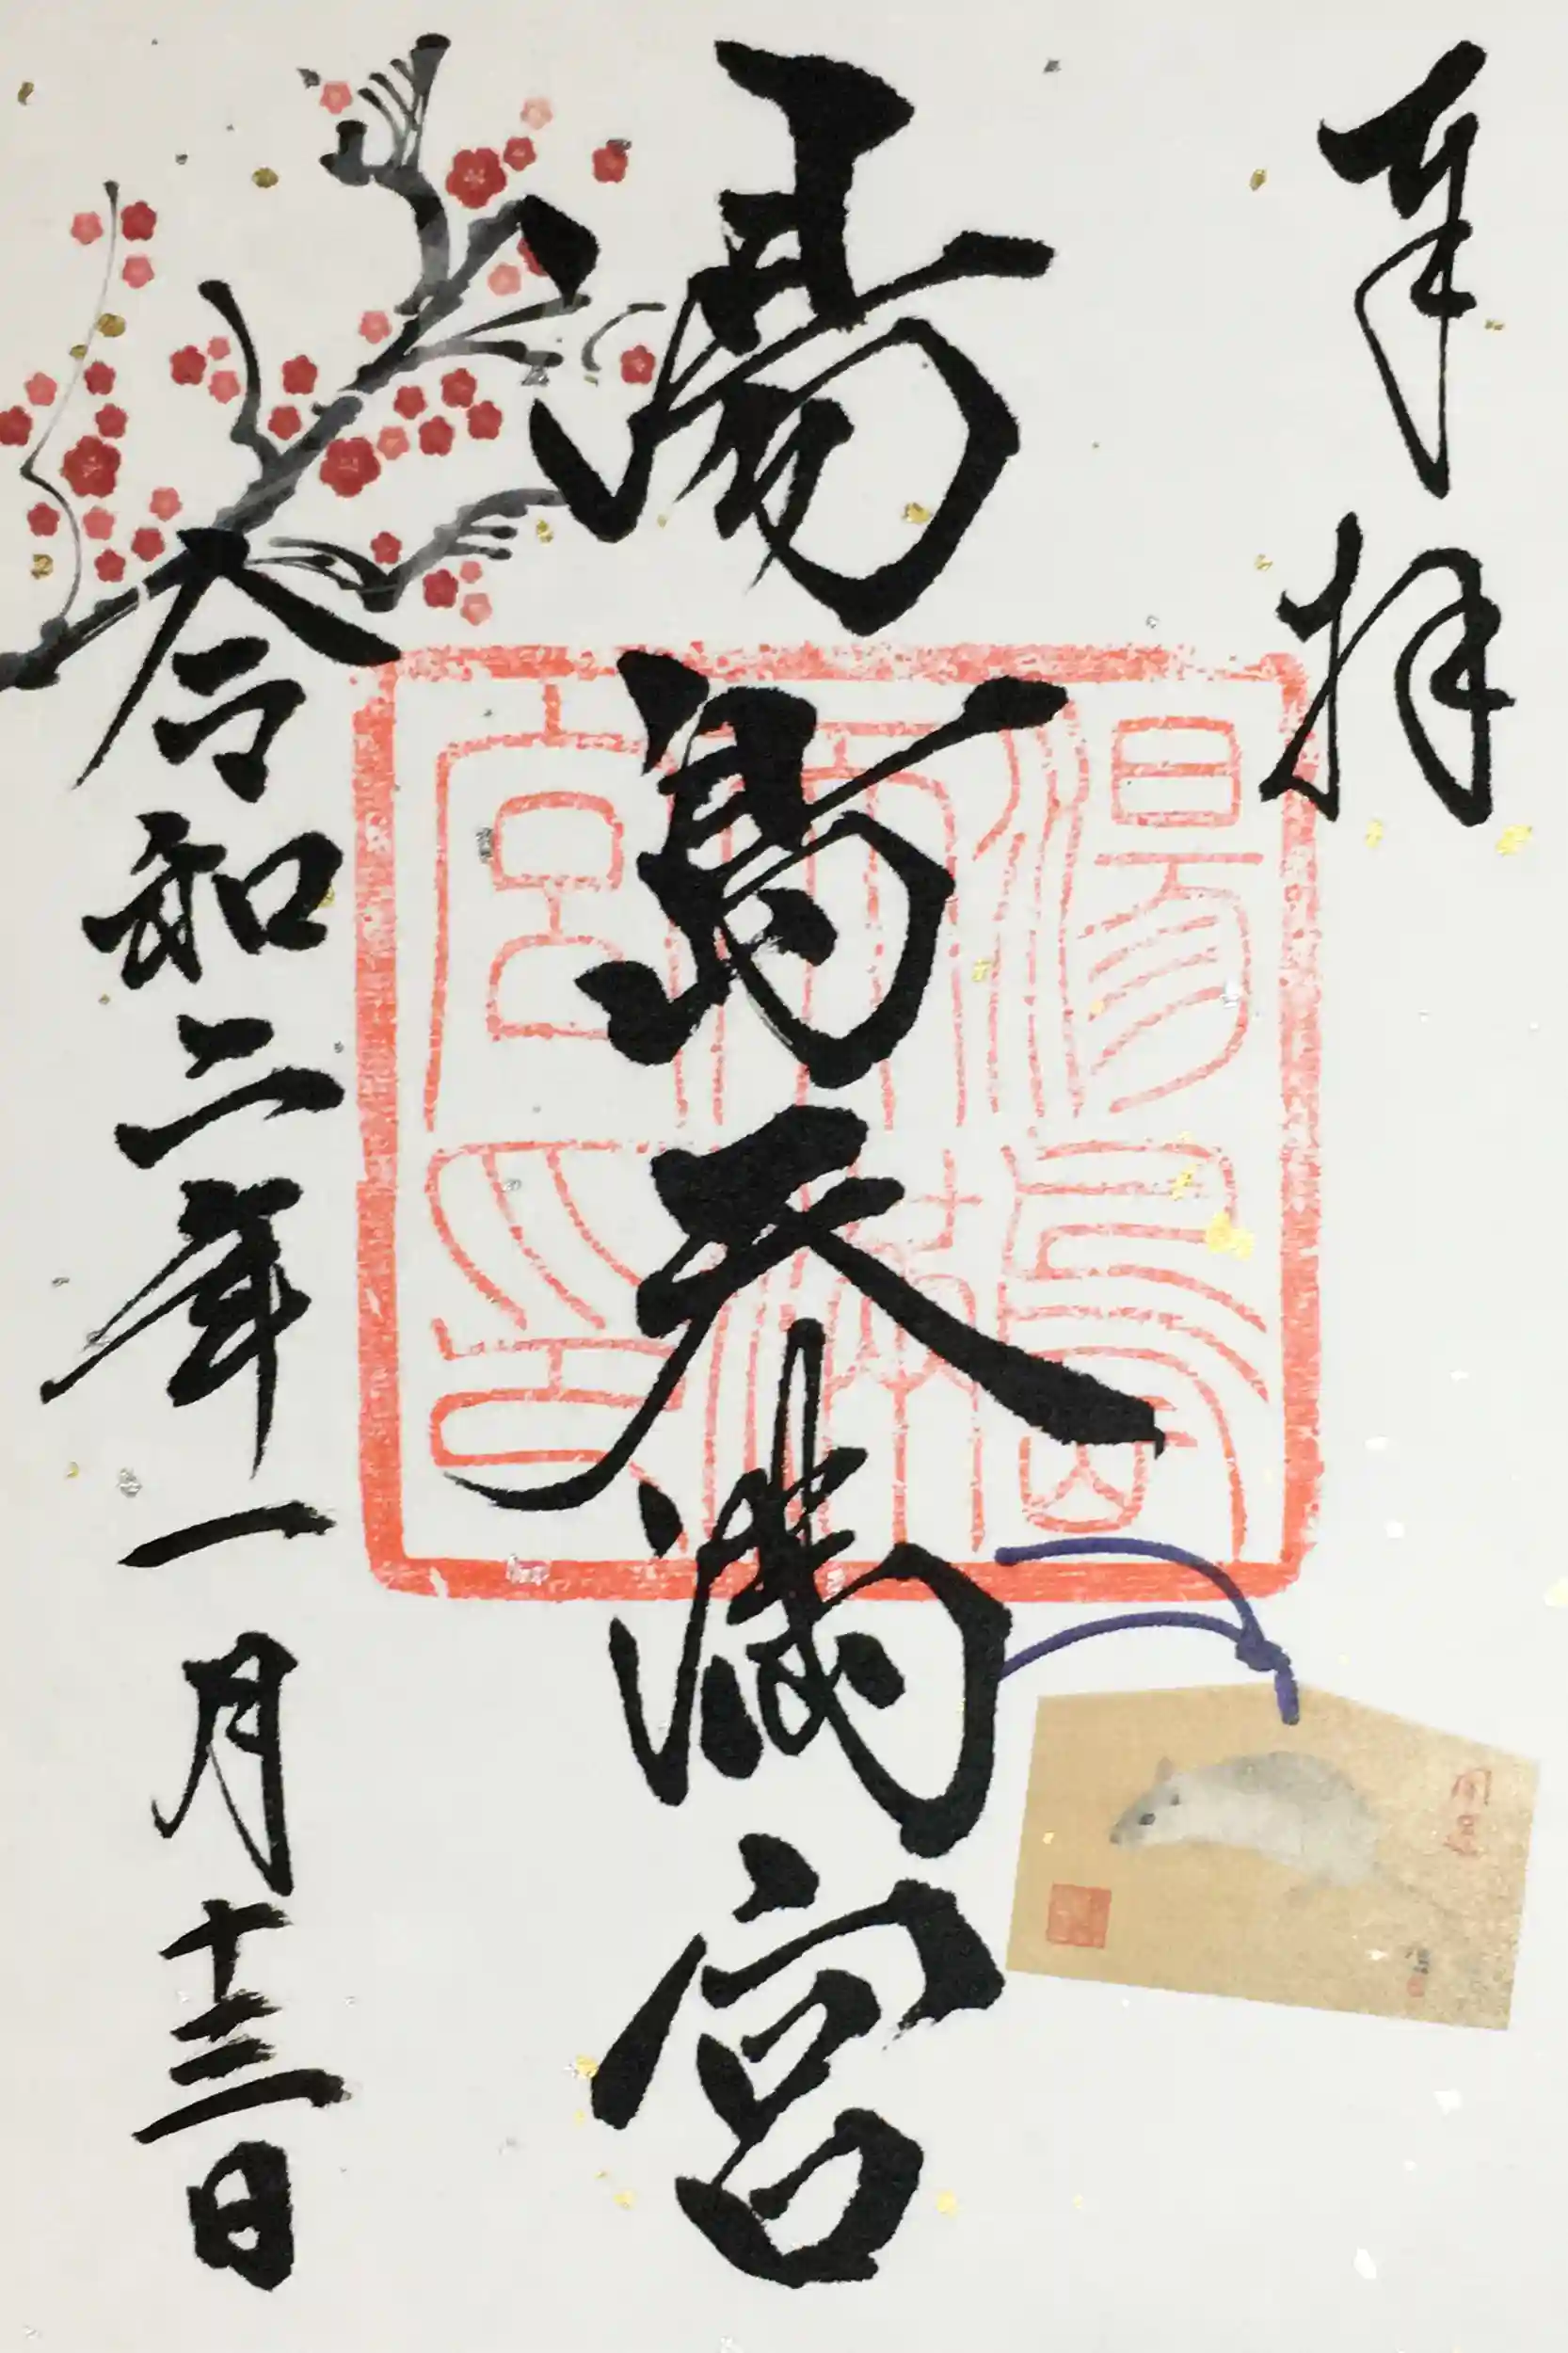 奉拝
湯島天満宮
湯島神社天満宮印
令和二年一月十三日